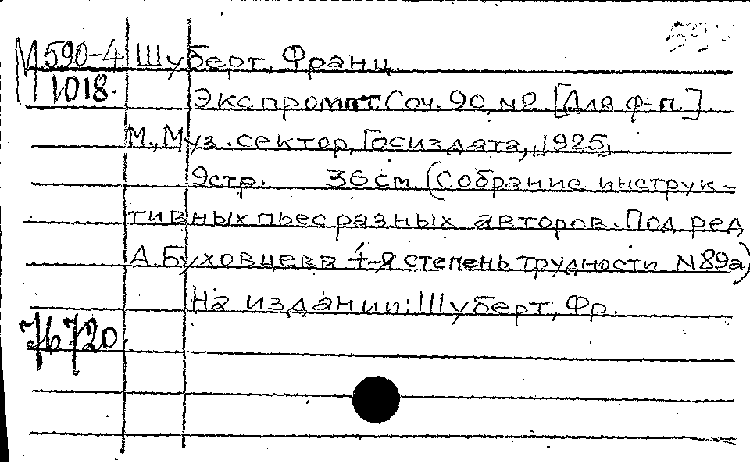 М590-4 Шуберт, Франц
1018.
Экспромпт. Соч. 90, №2 [Для ф-п.]
М., Муз. сектор Госиздата, 1925,
9 стр. 36 см (Собрание инструк-
тивных пьес разных авторов. Под ред
А. Буховцева 4-я степень трудности N 89а)
На издании: Шуберт, Фр.
76720.